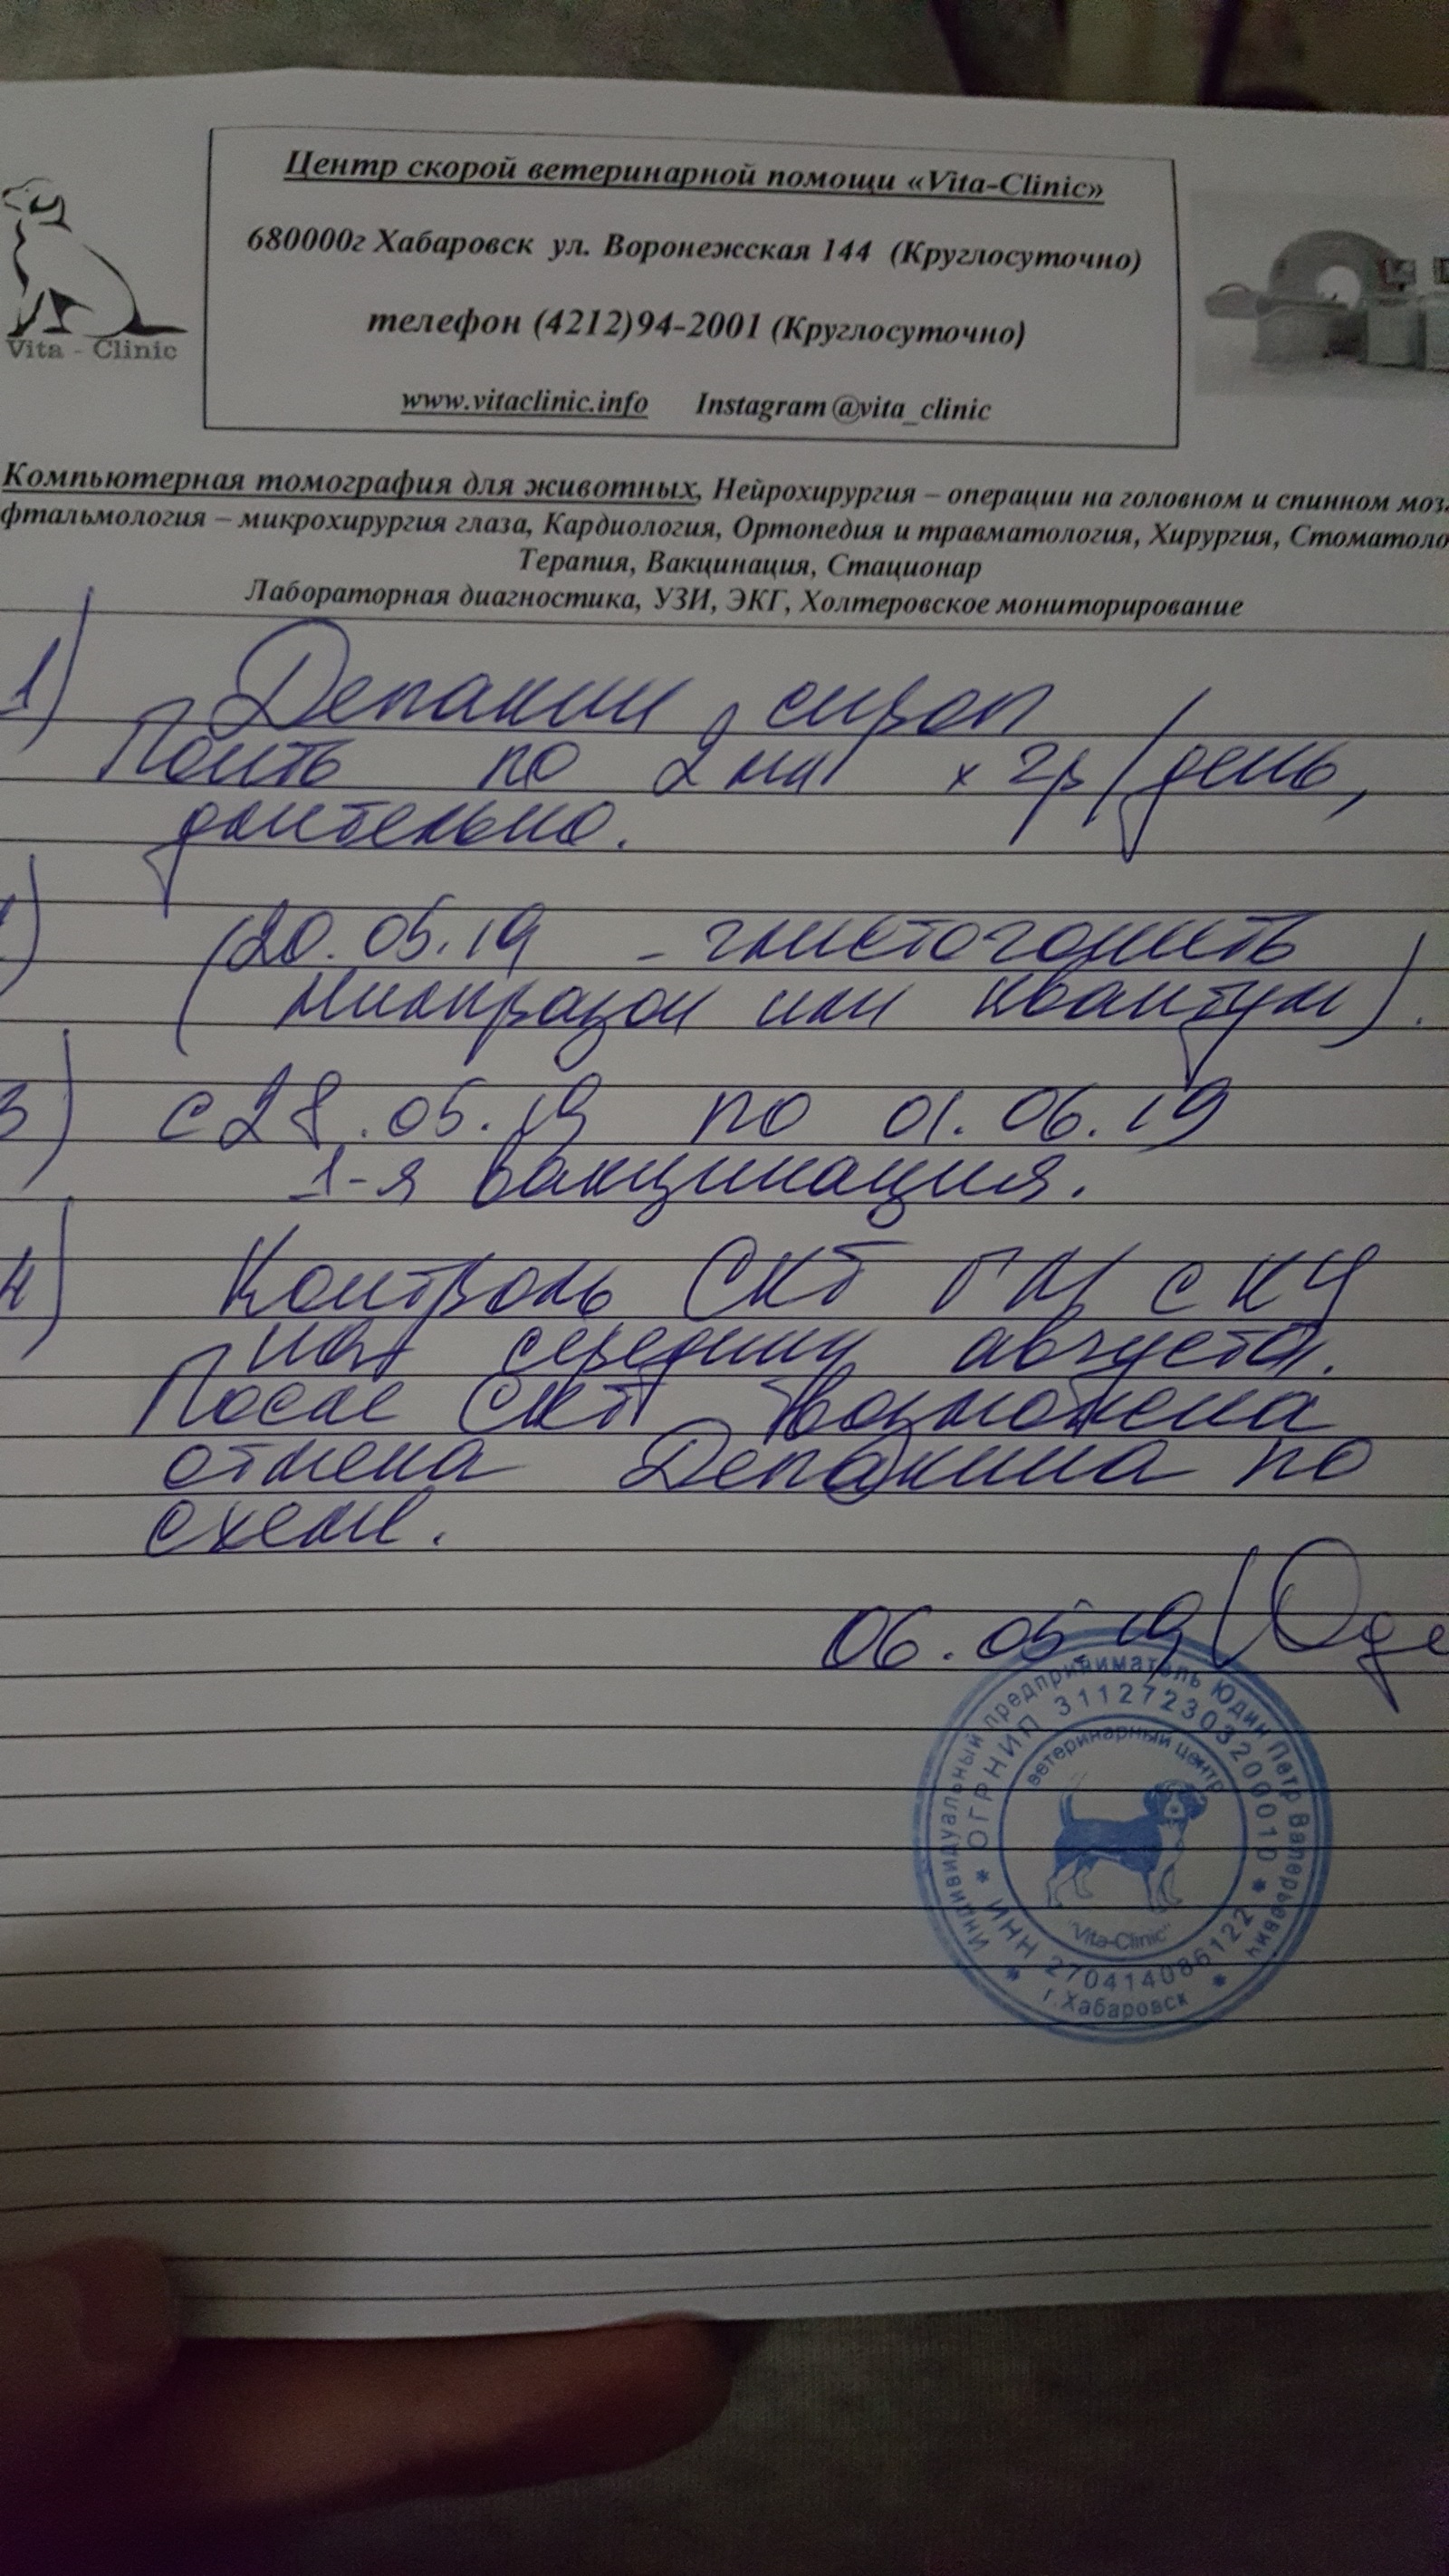 Центр скорой ветеринарной помощи «Vita-Clinic»
680000г Хабаровск ул. Воронежская 144 (Круглосуточно)
телефон (4212)94-2001 (Круглосуточно)
www.vitaclinic.info Instagram @vita_clinic
Vita - Clinic
Компьютерная томография для животных, Нейрохирургия – операции на головном и спинном моз
фтальмология – микрохирургия глаза, Кардиология, Ортопедия и травматология, Хирургия, Стоматоло
Терапия, Вакцинация, Стационар
Лабораторная диагностика, УЗИ, ЭКГ, Холтеровское мониторирование
1) Депакин, сироп
Поить по 2 мл х 2р/день,
длительно.
) 20.05.19 - глистогонить
(Милпразон или квантум).
3) с 28.05.19 по 01.06.19
1-я вакцинация.
4) Контроль СКТ ГМ с КУ
на середину августа.
После СКТ возможна
отмена Депакина по
схеме.
06.05.19
Индивидуальный предприниматель Юдин Петр Валерьевич
ОГРНИП 311272303200010
ИНН 270414086122
ветеринарный центр
"Vita-Clinic"
г.Хабаровск